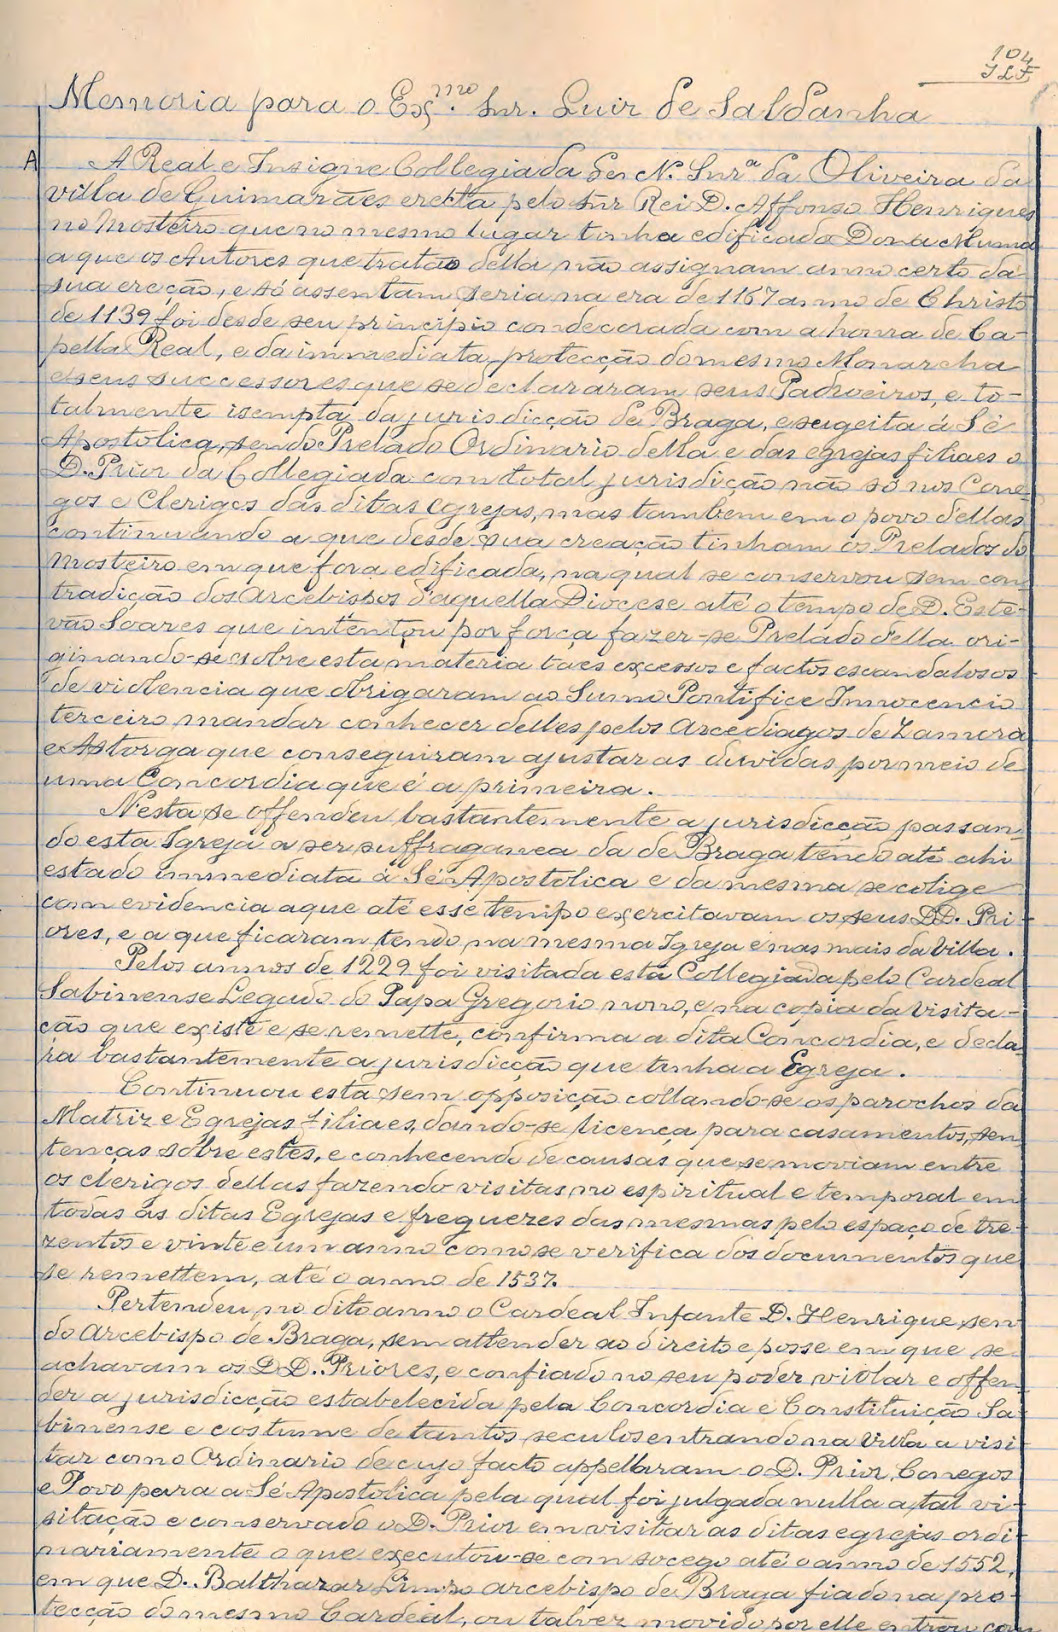 104
JLF
Memoria para o Exmo. Snr. Luiz de Saldanha
A
A Real e Insigne Collegiada de N. Snra da Oliveira da
villa de Guimarães erecta pelo Snr Rei D. Affonso Henriques
no Mosteiro que no mesmo lugar tinha edificado Dona Muma
a que os Autores que tratão della não assignam anno certo da
sua ereção, e só assentam seria na era de 1167 anno de Christo
de 1139 foi desde seu principio condecorada com a honra de Ca-
pella Real, e da immediata protecção do mesmo Monarcha
e seus successores que se declararam seus Padroeiros, e to-
talmente isempta da jurisdicção de Braga, e sugeita á Sé
Apostolica, sendo Prelado Ordinario della e das egrejas filiaes o
D. Prior da Collegiada com total jurisdição não só nos Cone-
gos e Clerigos das ditas egrejas, mas tambem em o povo d'ellas,
continuando a que desde sua creação tinham os Prelados do
Mosteiro em que fora edificada, na qual se conservou sem con
tradição dos Arcebispos d'aquella Diocese até o tempo de D. Este-
vão Soares que intentou por força fazer-se Prelado della ori-
ginando-se sobre esta materia taes excessos e factos escandalosos
de violencia que obrigaram ao Sumo Pontifice Innocencio
terceiro mandar conhecer delles pelos Arcediagos de Zamora
e Astorga que conseguiram ajustar as duvidas por meio de
uma Concordia que é a primeira.
N'esta se offendeu bastantemente a jurisdicção passan-
do esta Igreja a ser suffraganea da de Braga tendo até ahi
estado immediata á Sé Apostolica e da mesma se colige
com evidencia a que até esse tempo exercitavam os seus DD. Pri-
ores, e a que ficaram tendo na mesma Igreja e nas mais da Villa.
Pelos annos de 1229 foi visitada esta Collegiada pelo Cardeal
Sabinense Legado do Papa Gregorio nono, e na copia da visita-
ção que existe e se remette, confirma a dita Concordia, e decla-
ra bastantemente a jurisdicção que tinha a Egreja.
Continuou esta sem opposição collando-se os parochos da
Matriz e Egrejas filiaes, dando-se licença para casamentos, sen
tenças sobre estes, e conhecendo de causas que se moviam entre
os clerigos dellas fazendo visitas no espiritual e temporal em
todas as ditas Egrejas e freguezes das mesmas pelo espaço de tre-
zentos e vinte e um anno como se verifica dos documentos que
se remettem, até o anno de 1537.
Pertendeu no dito anno o Cardeal Infante D. Henrique, sen-
do Arcebispo de Braga, sem attender ao direito e posse em que se
achavam os DD. Priores, e confiado no seu poder violar e offen-
der a jurisdicção estabelecida pela Concordia e Constituição Sa-
binense e costume de tantos seculos entrando na Villa a visi-
tar como Ordinario de cujo facto appellaram o D. Prior, Conegos
e Povo para a Sé Apostolica pela qual foi julgada nulla a tal vi-
sitação e conservado o D. Prior em visitar as ditas egrejas ordi-
nariamente o que executou-se com socego até o anno de 1552,
em que D. Balthazar Limpo arcebispo de Braga fiado na pro-
tecção do mesmo Cardeal, ou talvez movido por elle entrou com